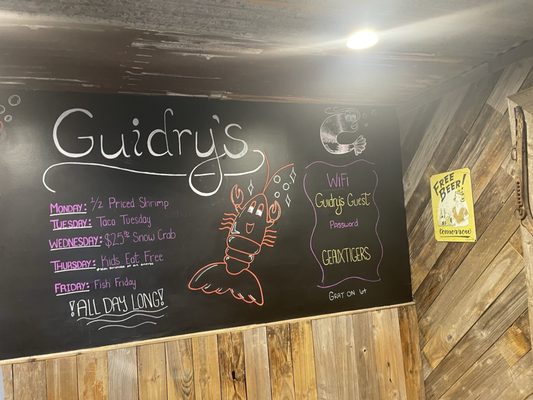 Guidry's
MONDAY: ½ Priced Shrimp
TUESDAY: Taco Tuesday
WEDNESDAY: $25 Snow Crab
THURSDAY: Kids Eat Free
FRIDAY: Fish Friday
!ALL DAY LONG!
WiFi
Guidry's Guest
Password
GEAUXTIGERS
FREE
BEER!
tomorrow